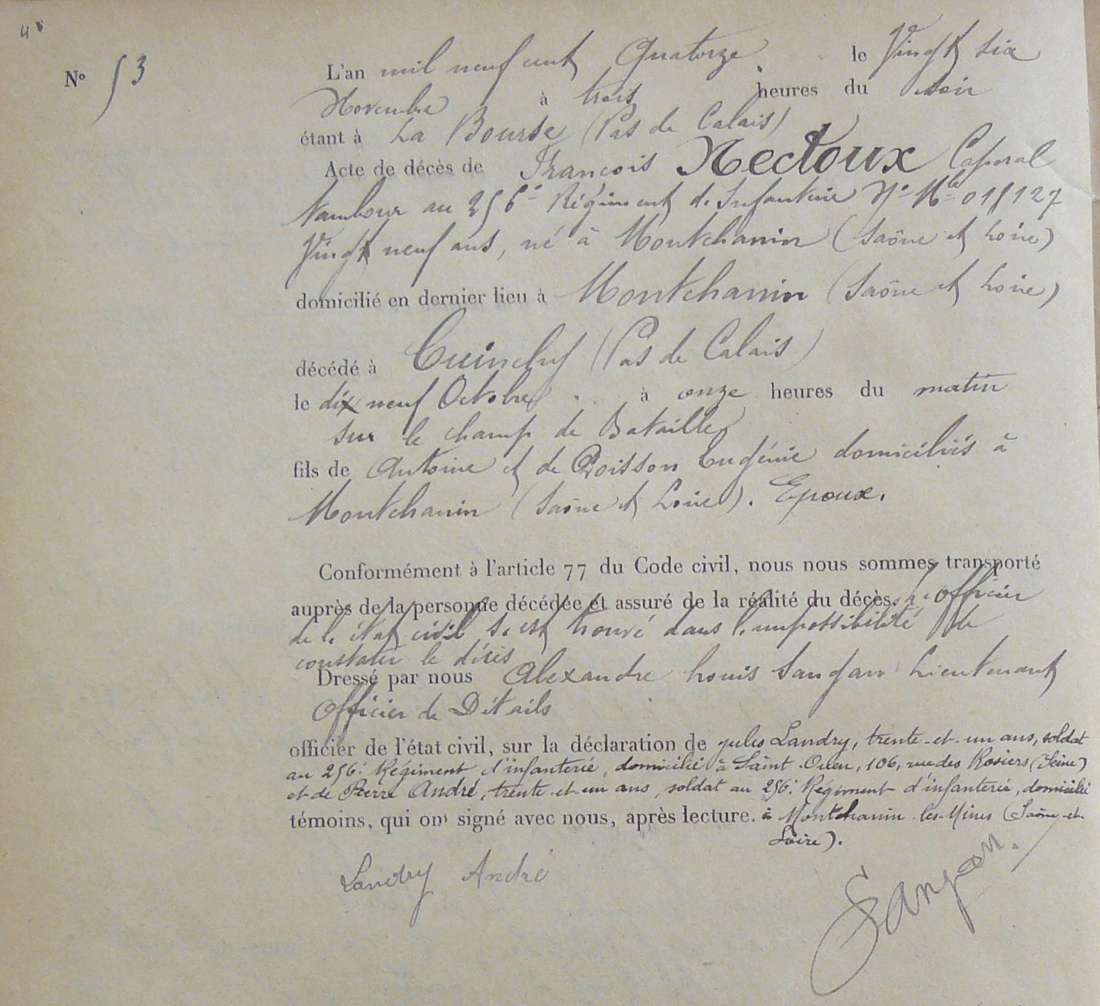 48
N° 53
L'an mil neuf cent Quatorze le Vingt six
Novembre à trois heures du soir
étant à La Bourse (Pas de Calais)
Acte de décès de François Nectoux Caporal
tambour au 256e Régiment de Infanterie N° Mle 011127
Vingt neuf ans, né à Montchanin (Saône et Loire)
domicilié en dernier lieu à Montchanin (Saône et Loire)
décédé à Cuinchy (Pas de Calais)
le dix neuf Octobre à onze heures du matin
sur le champ de Bataille
fils de Antoine et de Poisson Eugénie domiciliés à
Montchanin (Saône et Loire). Epoux.
Conformément à l'article 77 du Code civil, nous nous sommes transporté
auprès de la personne décédée et assuré de la réalité du décès. L'officier
de l'état civil s'est trouvé dans l'impossibilité de
constater le décès
Dressé par nous Alexandre Louis Sangan Lieutenant
Officier de Détails
officier de l'état civil, sur la déclaration de Jules Landry, trente-et-un ans, soldat
au 256e Régiment d'infanterie, domicilié à Saint-Ouen, 106, rue des Rosiers (Seine)
et de Pierre André, trente-et-un ans, soldat au 256e Régiment d'infanterie, domicilié
témoins, qui ont signé avec nous, après lecture. à Montchanin-les-Mines (Saône-et-
Loire).
Landry André